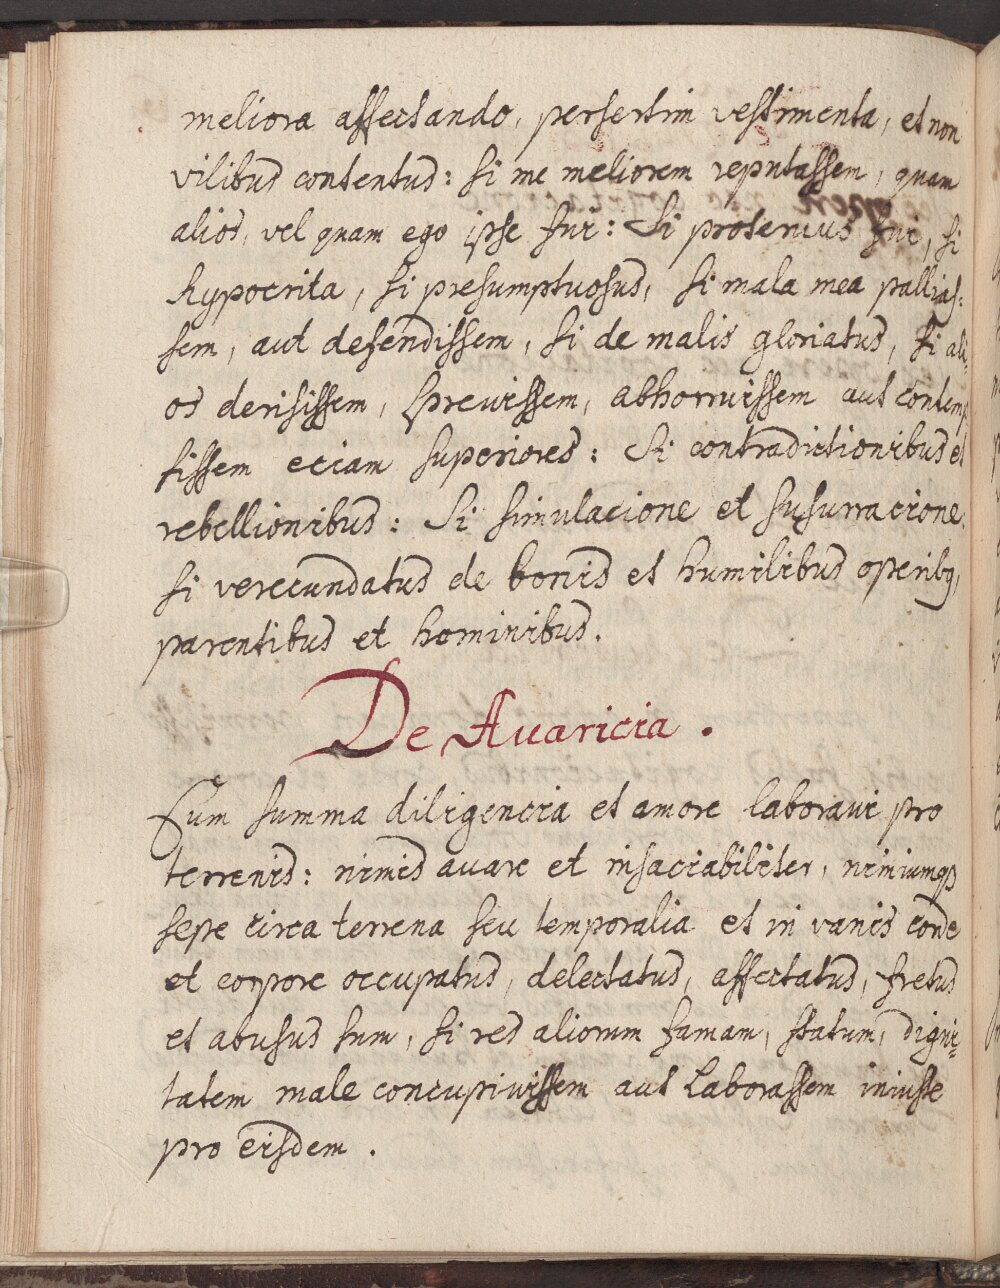 meliora affectando, persertim vestimenta, et non
vilibus contentus: si me meliorem reputassem, quam
alios, vel quam ego ipse fui: Si protervus fui, si
hypocrita, si presumptuosus, si mala mea pallias-
sem, aut defendissem, si de malis gloriatus, si ali-
os derisissem, sprevissem, abhorruissem aut contemp
sissem eciam superiores: Si contradictionibus et
rebellionibus: Si simulacione et susurracione,
si verecundatus de bonis et humilibus operibq,
parentibus et hominibus.
De Avaricia.
Cum summa diligencia et amore laboravi pro
terrenis: nimis avare et insaciabiliter, nimiumq3
sepe circa terrena seu temporalia et in vanis corde
et corpore occupatus, delectatus, affectatus, fretus
et abusus sum, si res aliorum famam, statum, digni-
tatem male concupivissem aut laborassem iniuste
pro eisdem.